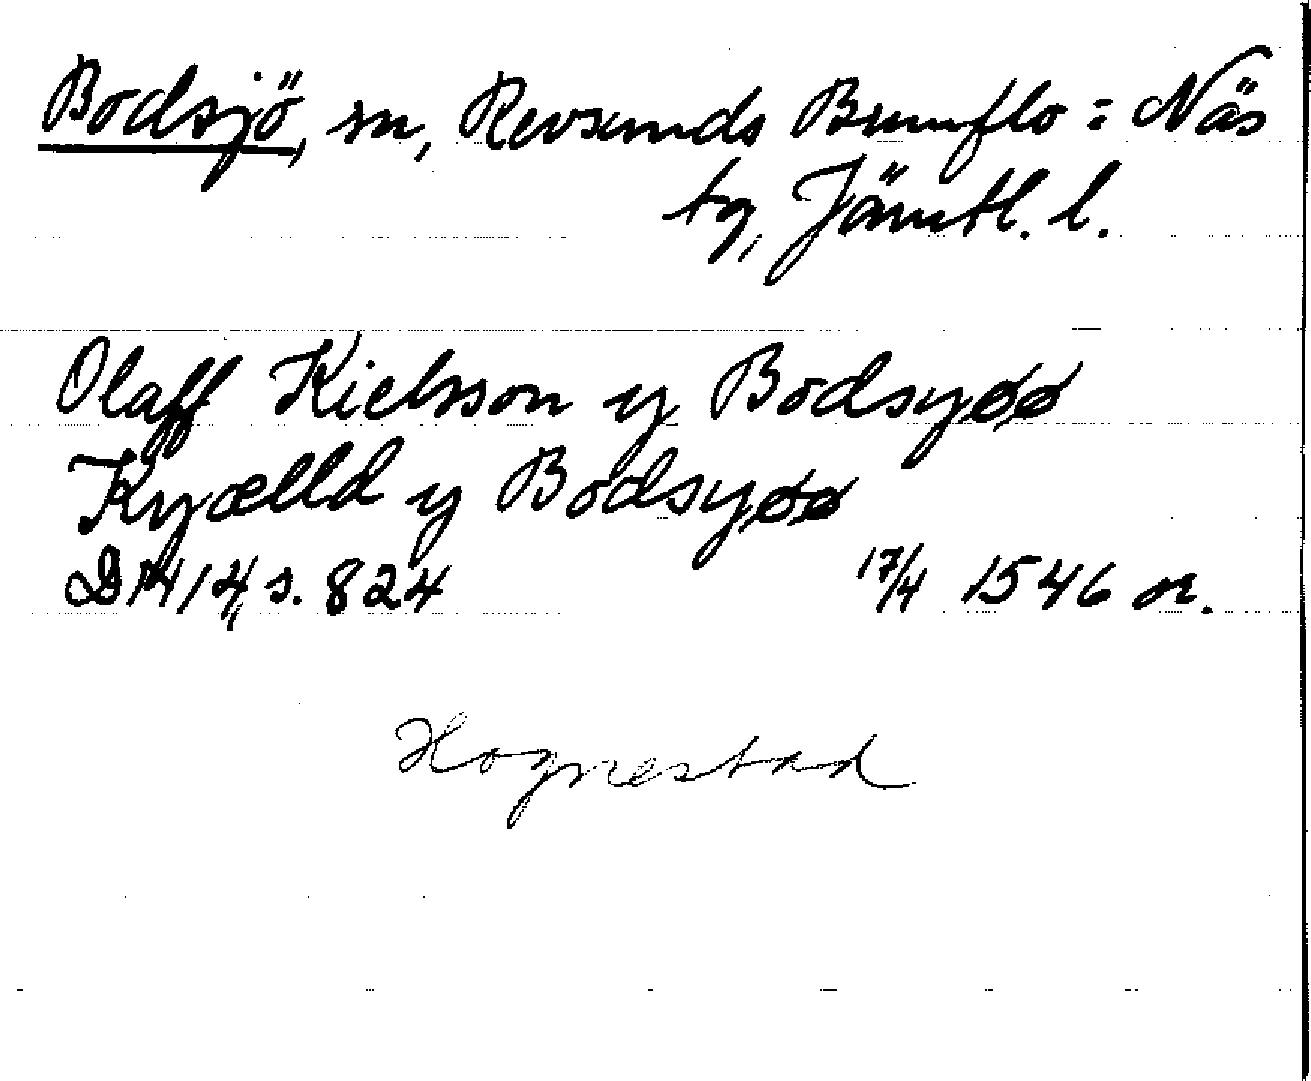 Bodsjö, sn, Revsunds Brunflo = Näs
tg, Jämtl. l.
Olaff Kielsson y Bodsyøø
Kyælld y Bodsyøø
DN 14, s. 824 17/4 1546 or.
Hognestad